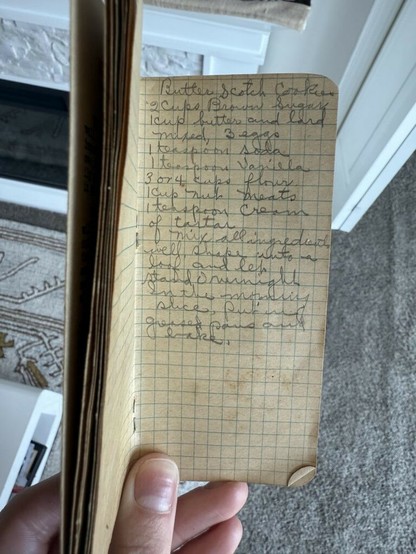 Butter Scotch Cookies
2 Cups Brown Sugar
1 cup butter and lard
mixed, 3 eggs
1 teaspoon soda
1 teaspoon Vanilla
3 or 4 Cups flour
1 Cup nut meats
1 teaspoon Cream
of tartar
mix all ingredients
well shape into a
loaf and let
stand overnight
in the morning
slice, put in
greased pans and
bake.